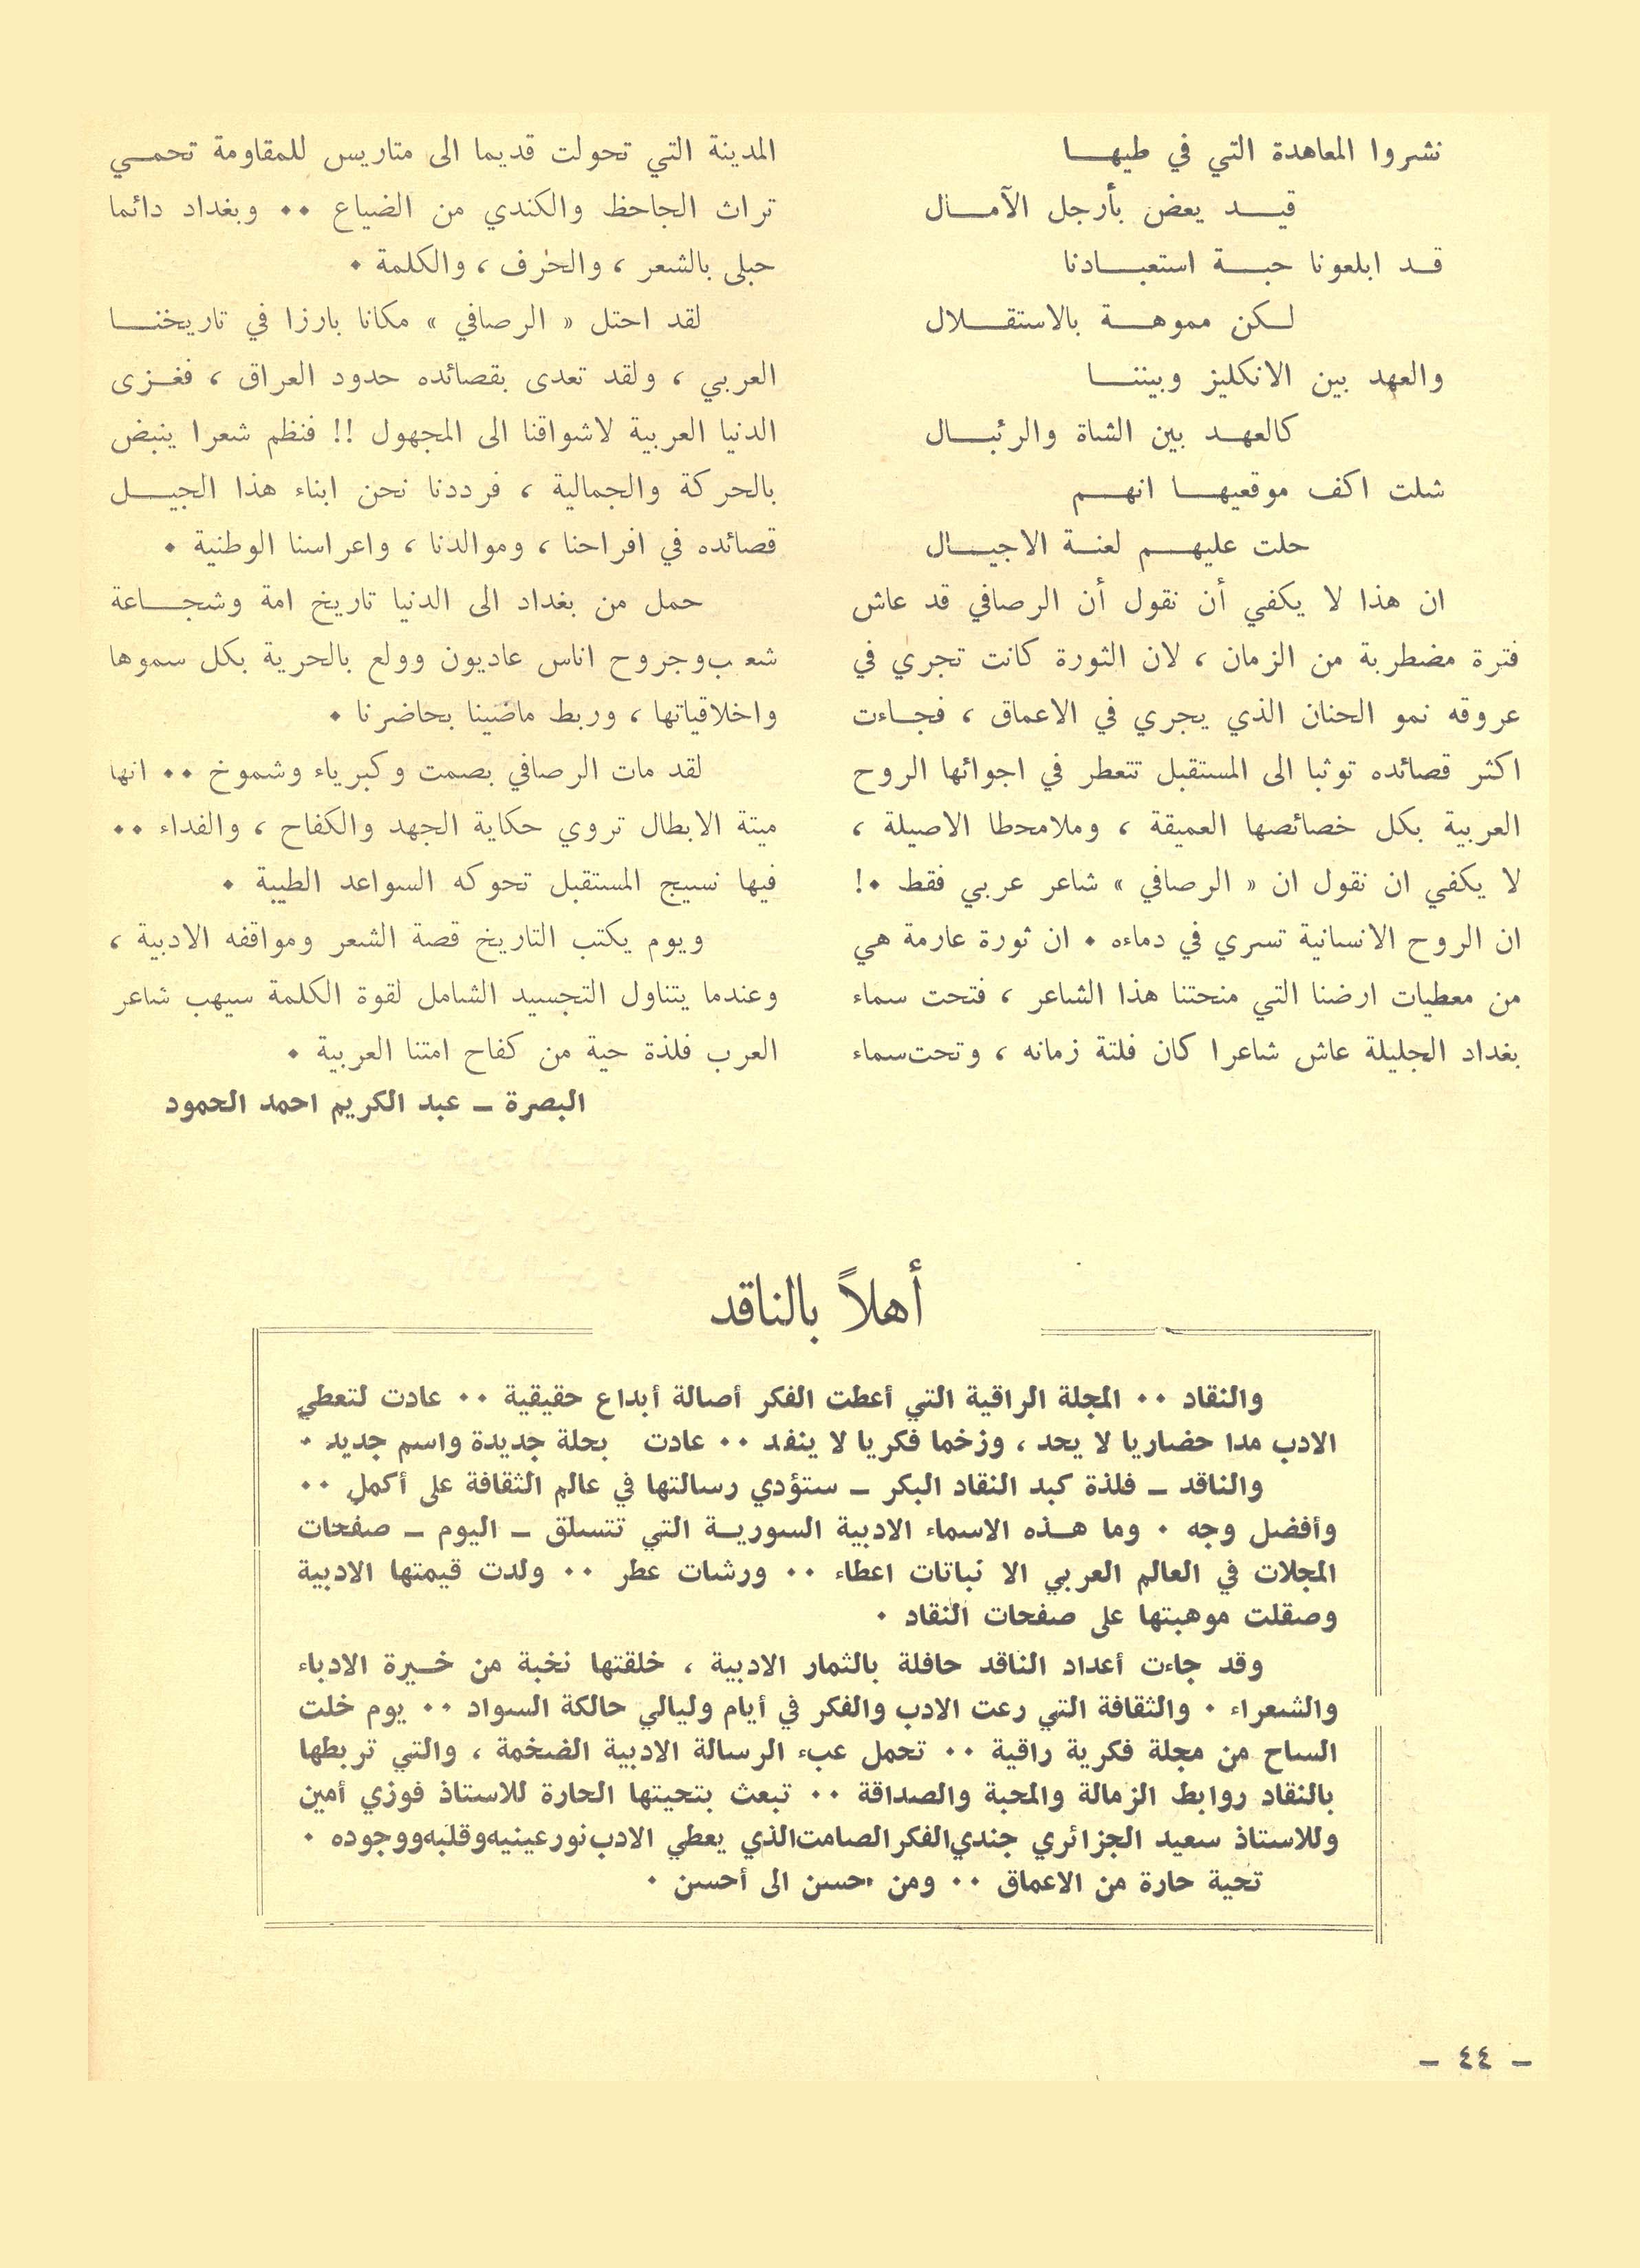 نشروا المعاهدة التي في طيهـــا
قيـــد يعض بأرجل الآمـــال
قـد ابلعونا حبـــة استعبـــادنا
لـــكن مموهـــة بالاستقـــلال
والعهد بين الانكليز وبيننـــا
كالعهـد بين الشاة والرئبـــال
شلت اكف موقعيهـــا انهـــم
حلت عليهـــم لعنـة الاجيـــال
ان هذا لا يكفي أن نقول أن الرصافي قد عاش
فترة مضطربة من الزمان ، لان الثورة كانت تجري في
عروقه نمو الحنان الذي يجري في الاعماق ، فجـاءت
اكثر قصائده توثبا الى المستقبل تتعطر في اجوائها الروح
العربية بكل خصائصها العميقة ، وملامحطا الاصيلة ،
لا يكفي ان نقول ان « الرصافي » شاعر عربي فقط ٠!
ان الروح الانسانية تسري في دماءه ٠ ان ثورة عارمة هي
من معطيات ارضنا التي منحتنا هذا الشاعر ، فتحت سماء
بغداد الجليلة عاش شاعرا كان فلتة زمانه ، وتحت سماء
المدينة التي تحولت قديما الى متاريس للمقاومة تحمـــي
تراث الجاحظ والكندي من الضياع ٠٠ وبغداد دائما
حبلى بالشعر ، والحرف ، والكلمة ٠
لقد احتل « الرصافي » مكانا بارزا في تاريخنـــا
العربي ، ولقد تعدى بقصائده حدود العراق ، فغـزى
الدنيا العربية لاشواقنا الى المجهول !! فنظم شعرا ينبض
بالحركة والجمالية ، فرددنا نحن ابناء هذا الجيـــل
قصائده في افراحنا ، وموالدنا ، واعراسنا الوطنية ٠
حمل من بغداد الى الدنيا تاريخ امة وشجـــاعة
شعب وجروح اناس عاديون وولع بالحرية بكل سموها
واخلاقياتها ، وربط ماضينا بحاضرنا ٠
لقد مات الرصافي بصمت وكبرياء وشموخ ٠٠ انها
ميتة الابطال تروي حكاية الجهد والكفاح ، والفداء ٠٠
فيها نسيج المستقبل تحوكه السواعد الطيبة ٠
ويوم يكتب التاريخ قصة الشعر ومواقفه الادبية ،
وعندما يتناول التجسيد الشامل لقوة الكلمة سيهب شاعر
العرب فلذة حية من كفاح امتنا العربية ٠
البصرة ـ عبد الكريم احمد الحمود
أهلاً بالناقد
والنقاد ٠٠ المجلة الراقية التي أعطت الفكر أصالة أبداع حقيقية ٠٠ عادت لتعطي
الادب مدا حضاريا لا يحد ، وزخما فكريا لا ينفد ٠٠ عادت بحلة جديدة واسم جديد ٠
والناقد ـ فلذة كبد النقاد البكر ـ ستؤدي رسالتها في عالم الثقافة على أكمل ٠٠
وأفضل وجه ٠ وما هـذه الاسماء الادبية السوريـة التي تتسلق ـ اليوم ـ صفحات
المجلات في العالم العربي الا نباتات اعطاء ٠٠ ورشات عطر ٠٠ ولدت قيمتها الادبية
وصقلت موهبتها على صفحات النقاد ٠
وقد جاءت أعداد الناقد حافلة بالثمار الادبية ، خلقتها نخبة من خـيرة الادباء
والشعراء ٠ والثقافة التي رعت الادب والفكر في أيام وليالي حالكة السواد ٠٠ يوم خلت
الساح من مجلة فكرية راقية ٠٠ تحمل عبء الرسالة الادبية الضخمة ، والتي تربطها
بالنقاد روابط الزمالة والمحبة والصداقة ٠٠ تبعث بتحيتها الحارة للاستاذ فوزي أمين
وللاستاذ سعيد الجزائري جندي الفكر الصامت الذي يعطي الادب نور عينيه وقلبه ووجوده ٠
تحية حارة من الاعماق ٠٠ ومن حسن الى أحسن ٠
ـ ٤٤ ـ